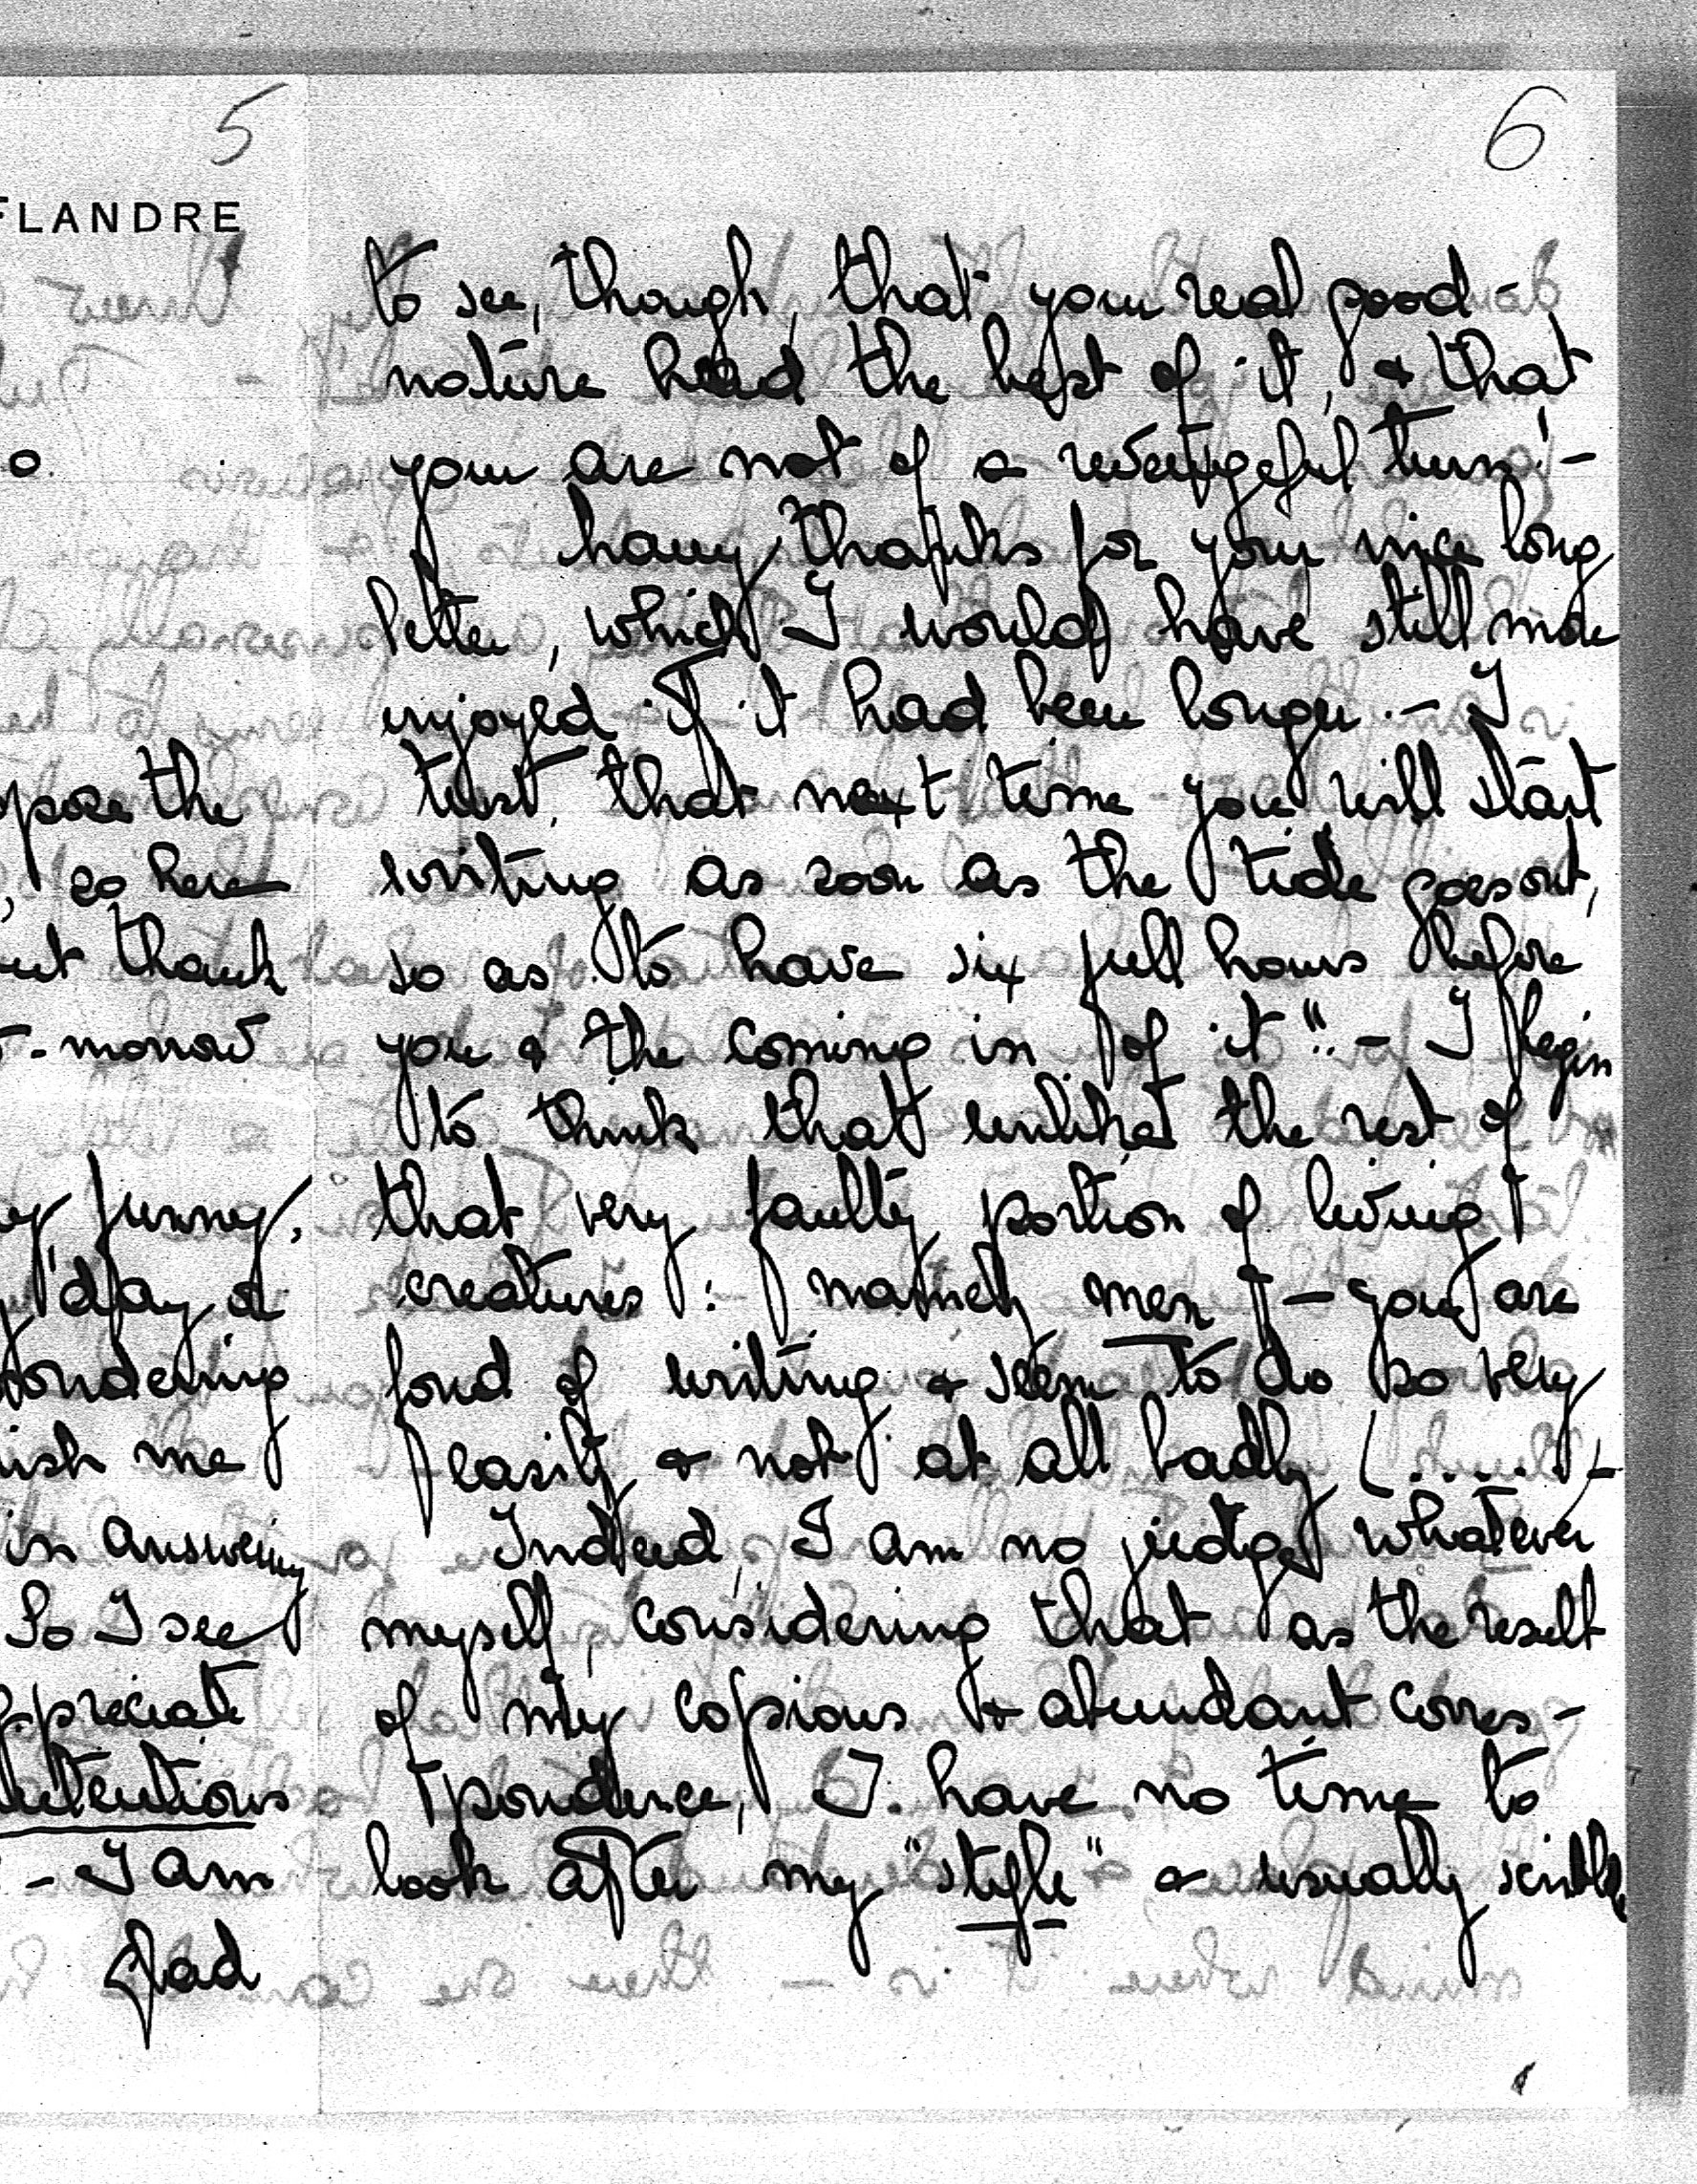 5
FLANDRE
o.
the
, so here
thank
-monow
funny,
day or
ondering
ish me
in answering
So I see
ppreciate
intentions
- I am
glad
6
to see, though, that your real good-
nature had the best of it, & that
your are not of a revengeful turn! -
Many thanks for your nice long
letter, which I would have still more
enjoyed if it had been longer. - I
trust, that next time you will start
writing as soon as the tide goes out,
so as to have six full hours before
you & the "coming in of it". - I begin
to think that unlike the rest of
that very faulty portion of living
creatures: namely men - you are
fond of writing & seem to do so very
easily & not at all badly (..... -
Indeed, I am no judge whatever
myself, considering that as the result
of my copious & abundant corres-
pondence, I have no time to
look after my "style" & usually scribble